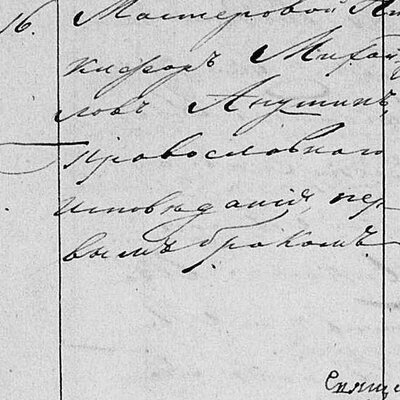 16. Мастеровой Ни
кифоръ Михай
ловъ Анушинъ,
православнаго
исповѣданія, пер-
вымъ бракомъ
Свяще